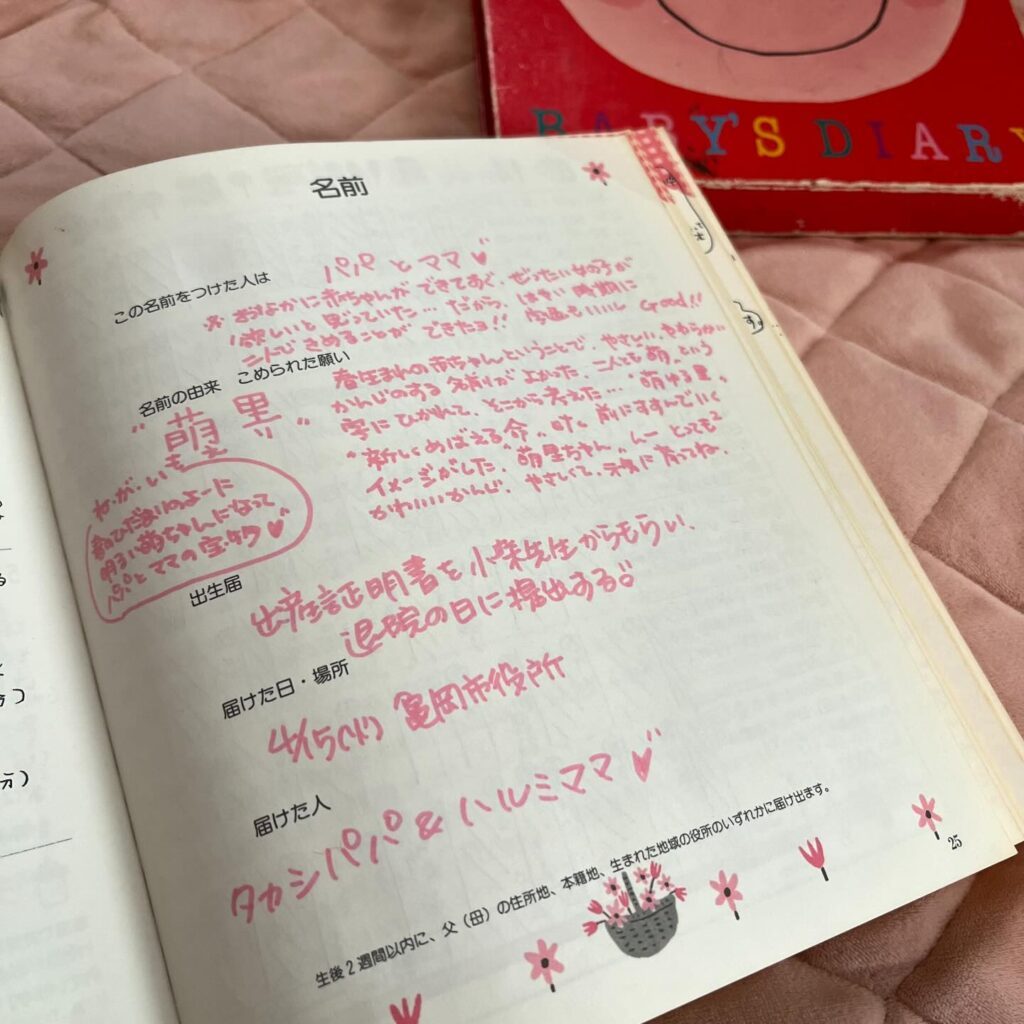 BABY'S DIARY
名前
この名前をつけた人は
パパとママ♡
おなかに赤ちゃんができてすぐ、ぜったい女の子が
欲しいと思っていた…だから、はやい時期に
二人できめることができたヨ!! 字画もいいし Good!!
名前の由来 こめられた願い
"萌里"
もえ
り
春生まれの赤ちゃんということで、やさしい、やわらかい
かんじのする名前がよかった。二人とも萌、という
字にひかれて、そこから考えた…"萌ゆる里"
"新しいめばえる
前にすすんでいく
イメージがした。萌里ちゃん。んーとっても
かわいいかんじ、やさしくて、元気に育ってね。
ね・が・い
春のひだまりのよーに
明るい萌ちゃんになって
パパとママの宝タカラ♡
出生届
出産証明書を小柴先生からもらい、
退院の日に提出する。
届けた日・場所
4/15(火) 亀岡市役所
届けた人
タカシパパ&ハルミママ♡
生後2週間以内に、父(母)の住所地、本籍地、生まれた地域の役所のいずれかに届け出ます。
25
分)